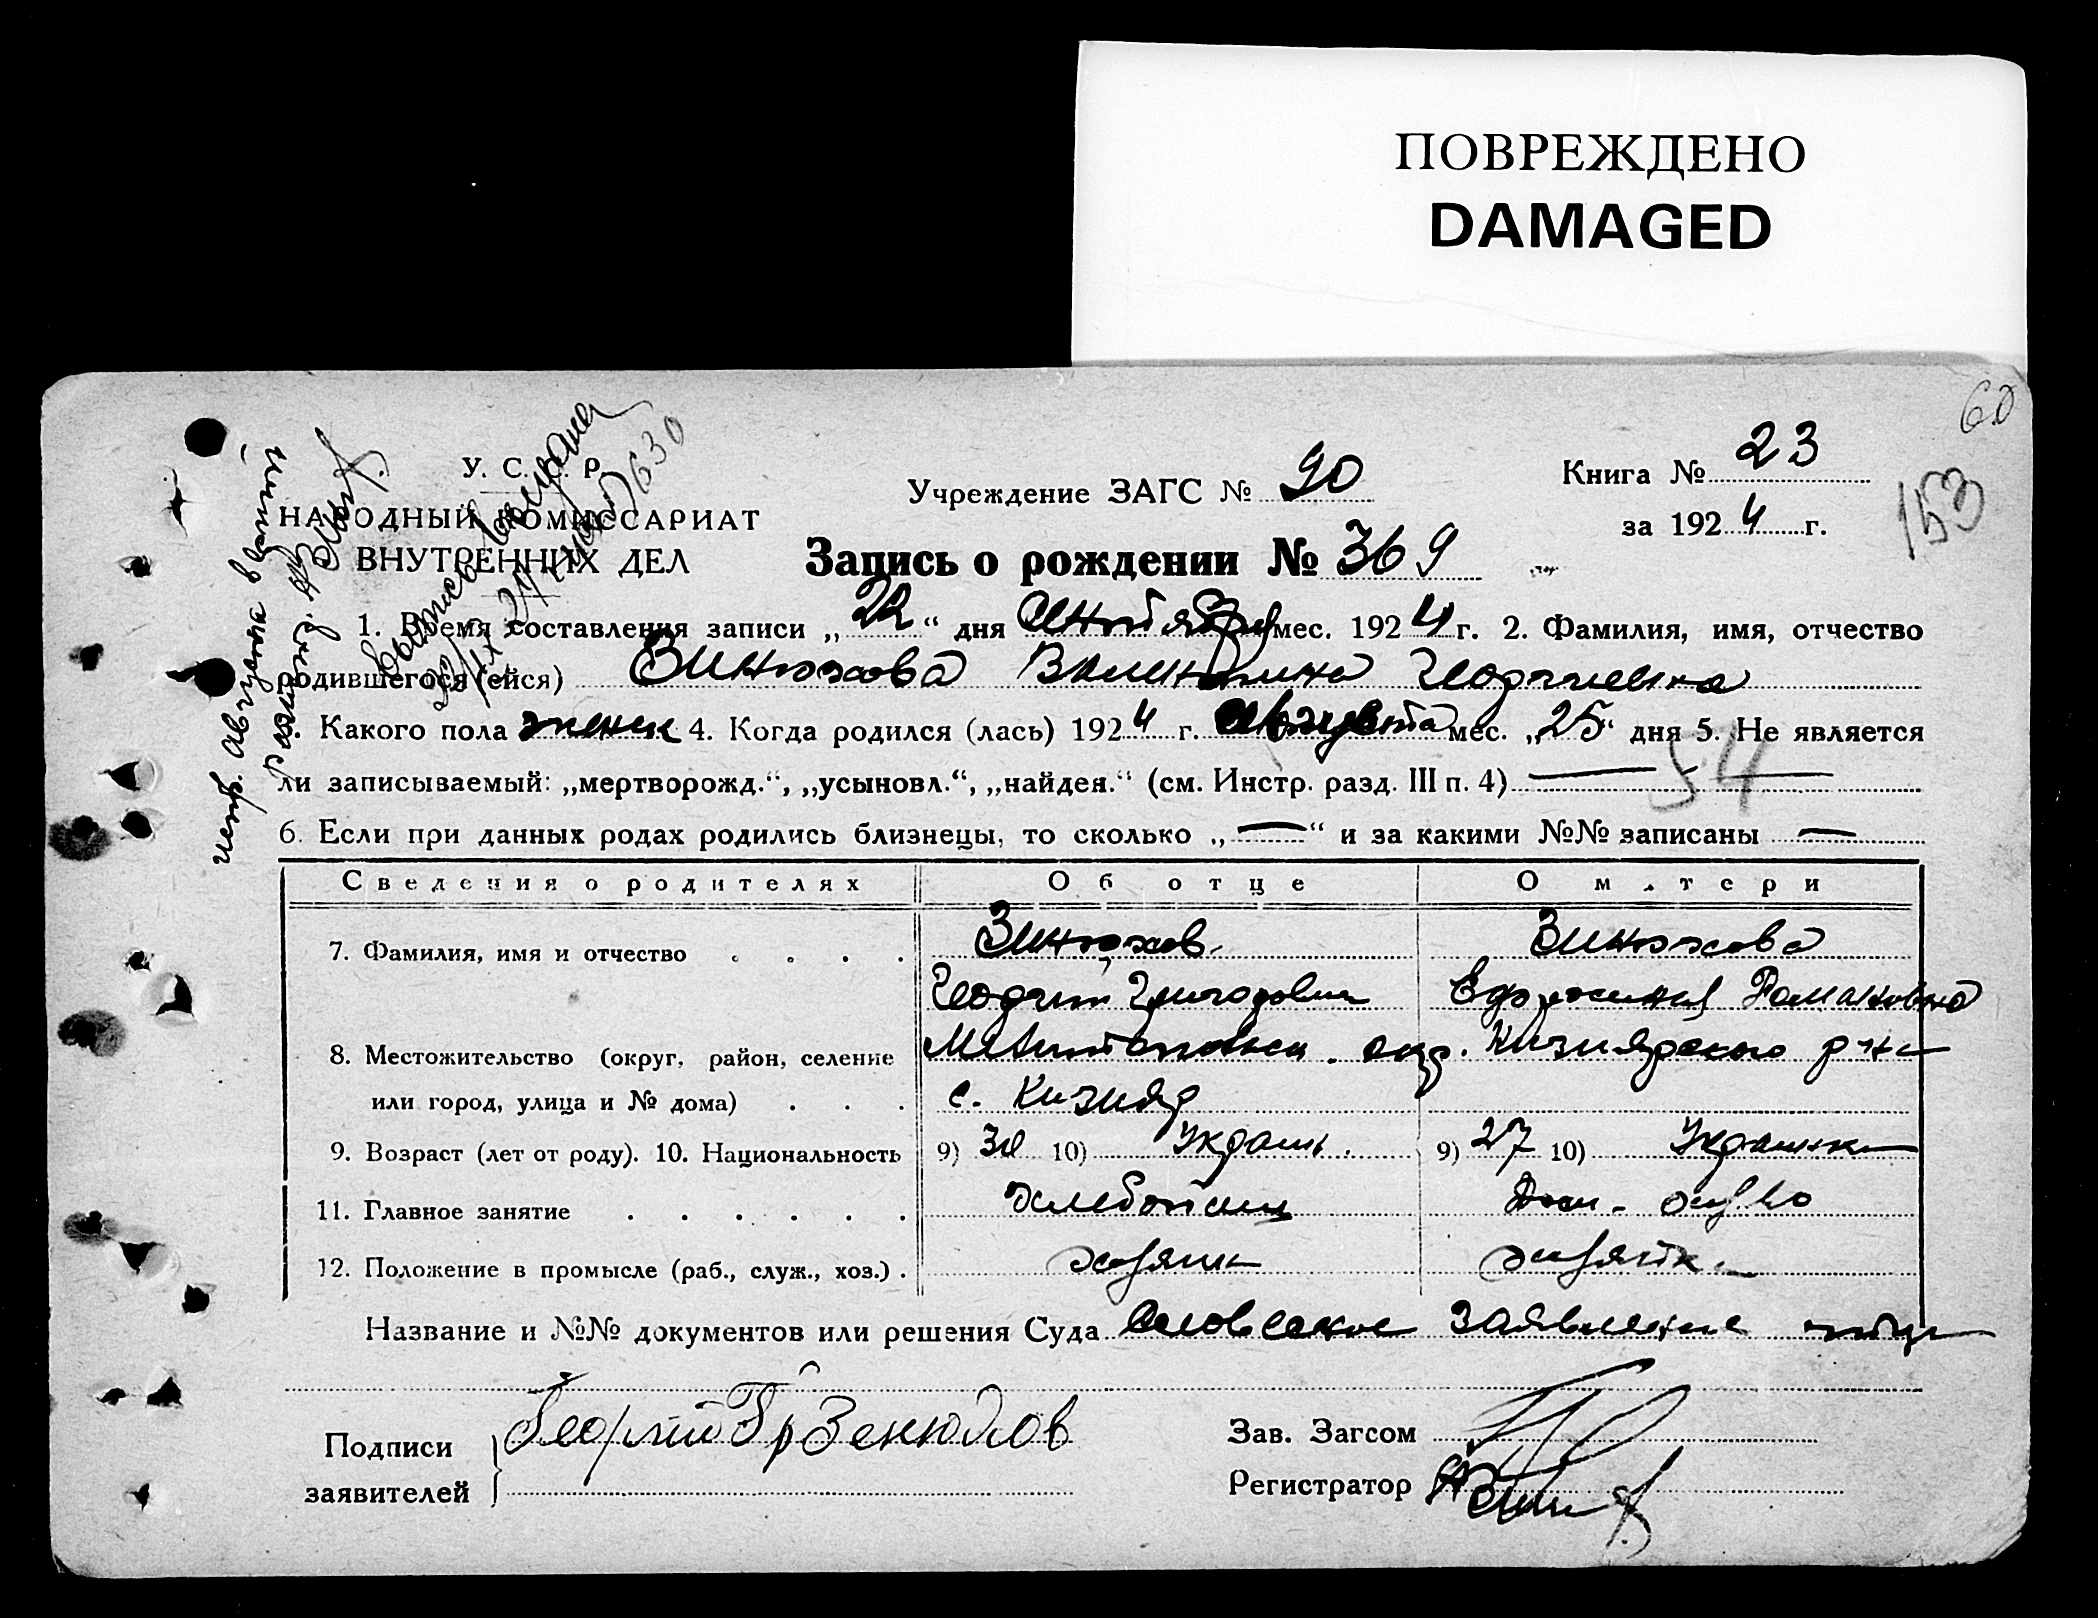 ПОВРЕЖДЕНО
DAMAGED
60
153
У. С. . Р.
НАРОДНЫЙ КОМИССАРИАТ
ВНУТРЕННИХ ДЕЛ
Учреждение ЗАГС № 90
Книга № 23
за 1924 г.
Запись о рождении № 369
испр. августа верить
1. Время составления записи „22“ дня мес. 1924 г. 2. Фамилия, имя, отчество
родившегося (ейся) Зинюхова Валентина Георгиевна
3. Какого пола женск 4. Когда родился (лась) 1924 г. Августа мес. „25“ дня 5. Не является
ли записываемый: „мертворожд.“, „усыновл.“, „найден.“ (см. Инстр. разд. III п. 4) — 54 —
6. Если при данных родах родились близнецы, то сколько „—“ и за какими №№ записаны —
Сведения о родителях Об отце О матери
7. Фамилия, имя и отчество . . . . Зинюхов Зинюхова
Георгий Григорович Ефросиния Романовна
8. Местожительство (округ, район, селение Мелитопольск. окр. Кизиярского р-на
или город, улица и № дома) . . . с. Кизияр
9. Возраст (лет от роду). 10. Национальность 9) 30 10) Украин. 9) 27 10) Украинка
11. Главное занятие . . . . . . хлебопашец Дом. хоз-во
12. Положение в промысле (раб., служ., хоз.) . хозяин хозяйка
Название и №№ документов или решения Суда Словесное заявление отца
Подписи
заявителей
Георгий Гр Зенюхов
Зав. Загсом
Регистратор